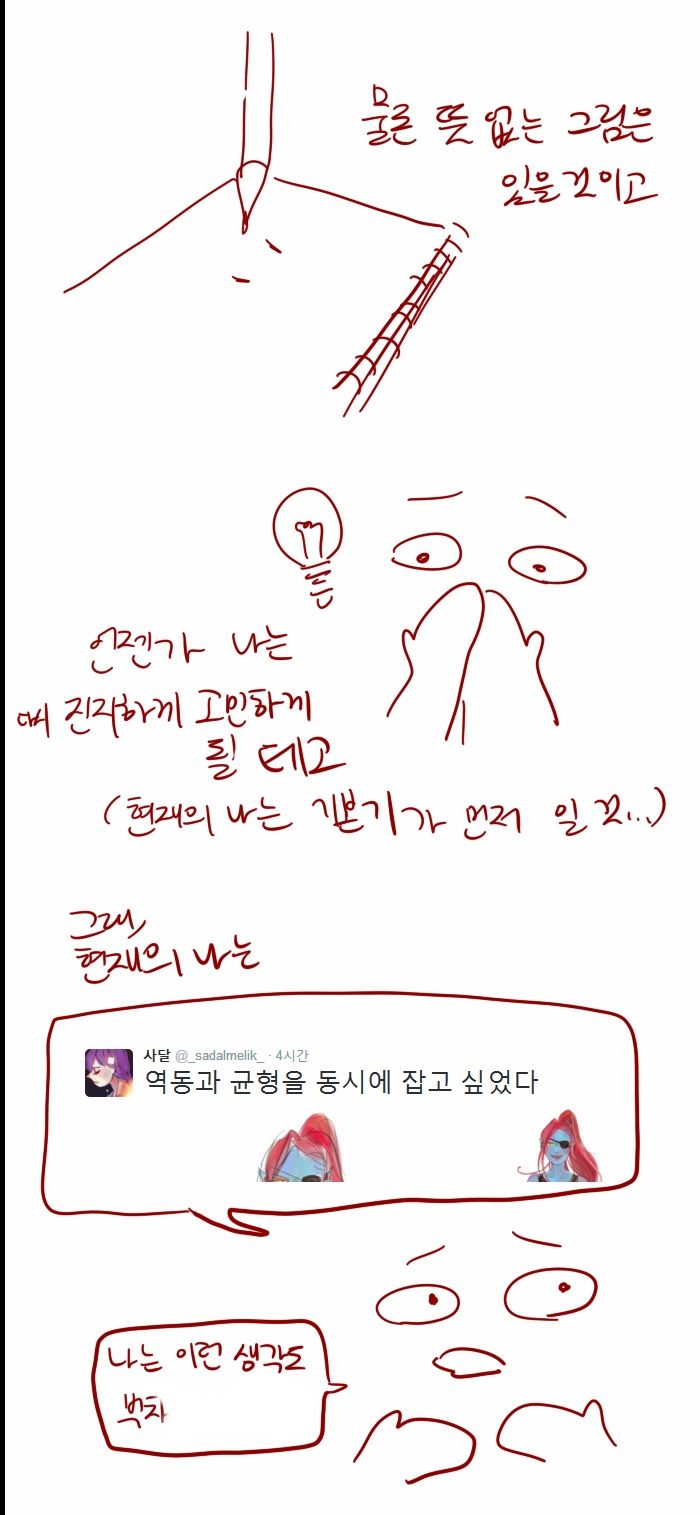 물론 뜻 없는 그림은
있을것이고
언젠가 나는
또 진지하게 고민하게
될 테고
(현재의 나는 기본기가 먼저 일 것...)
그래,
현재의 나는
사달 @_sadalmelik_ · 4시간
역동과 균형을 동시에 잡고 싶었다
나는 이런 생각도
벅차